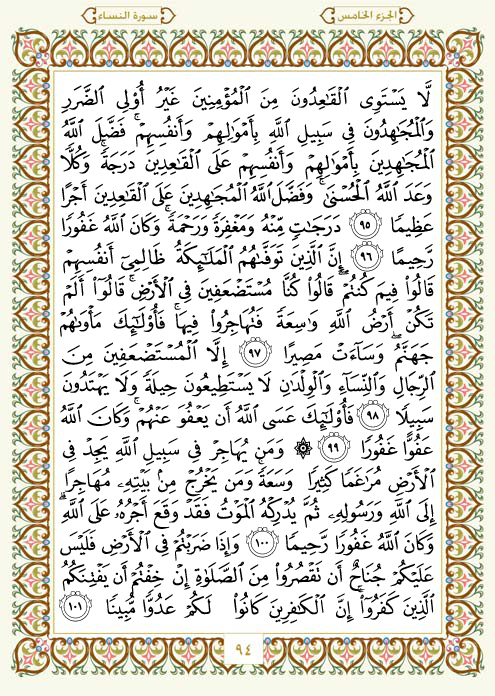 الجزء الخامس
سورة النساء
لَّا يَسْتَوِى ٱلْقَٰعِدُونَ مِنَ ٱلْمُؤْمِنِينَ غَيْرُ أُو۟لِى ٱلضَّرَرِ
وَٱلْمُجَٰهِدُونَ فِى سَبِيلِ ٱللَّهِ بِأَمْوَٰلِهِمْ وَأَنفُسِهِمْ ۚ فَضَّلَ ٱللَّهُ
ٱلْمُجَٰهِدِينَ بِأَمْوَٰلِهِمْ وَأَنفُسِهِمْ عَلَى ٱلْقَٰعِدِينَ دَرَجَةً ۚ وَكُلًّا
وَعَدَ ٱللَّهُ ٱلْحُسْنَىٰ ۚ وَفَضَّلَ ٱللَّهُ ٱلْمُجَٰهِدِينَ عَلَى ٱلْقَٰعِدِينَ أَجْرًا
عَظِيمًا ٩٥ دَرَجَٰتٍ مِّنْهُ وَمَغْفِرَةً وَرَحْمَةً ۚ وَكَانَ ٱللَّهُ غَفُورًا
رَّحِيمًا ٩٦ إِنَّ ٱلَّذِينَ تَوَفَّىٰهُمُ ٱلْمَلَٰٓئِكَةُ ظَالِمِىٓ أَنفُسِهِمْ
قَالُوا۟ فِيمَ كُنتُمْ ۖ قَالُوا۟ كُنَّا مُسْتَضْعَفِينَ فِى ٱلْأَرْضِ ۚ قَالُوٓا۟ أَلَمْ
تَكُنْ أَرْضُ ٱللَّهِ وَٰسِعَةً فَتُهَاجِرُوا۟ فِيهَا ۚ فَأُو۟لَٰٓئِكَ مَأْوَىٰهُمْ
جَهَنَّمُ ۖ وَسَآءَتْ مَصِيرًا ٩٧ إِلَّا ٱلْمُسْتَضْعَفِينَ مِنَ
ٱلرِّجَالِ وَٱلنِّسَآءِ وَٱلْوِلْدَٰنِ لَا يَسْتَطِيعُونَ حِيلَةً وَلَا يَهْتَدُونَ
سَبِيلًا ٩٨ فَأُو۟لَٰٓئِكَ عَسَى ٱللَّهُ أَن يَعْفُوَ عَنْهُمْ ۚ وَكَانَ ٱللَّهُ
عَفُوًّا غَفُورًا ٩٩ ۞ وَمَن يُهَاجِرْ فِى سَبِيلِ ٱللَّهِ يَجِدْ فِى
ٱلْأَرْضِ مُرَٰغَمًا كَثِيرًا وَسَعَةً ۚ وَمَن يَخْرُجْ مِنۢ بَيْتِهِۦ مُهَاجِرًا
إِلَى ٱللَّهِ وَرَسُولِهِۦ ثُمَّ يُدْرِكْهُ ٱلْمَوْتُ فَقَدْ وَقَعَ أَجْرُهُۥ عَلَى ٱللَّهِ ۗ
وَكَانَ ٱللَّهُ غَفُورًا رَّحِيمًا ١٠٠ وَإِذَا ضَرَبْتُمْ فِى ٱلْأَرْضِ فَلَيْسَ
عَلَيْكُمْ جُنَاحٌ أَن تَقْصُرُوا۟ مِنَ ٱلصَّلَوٰةِ إِنْ خِفْتُمْ أَن يَفْتِنَكُمُ
ٱلَّذِينَ كَفَرُوٓا۟ ۚ إِنَّ ٱلْكَٰفِرِينَ كَانُوا۟ لَكُمْ عَدُوًّا مُّبِينًا ١٠١
٩٤